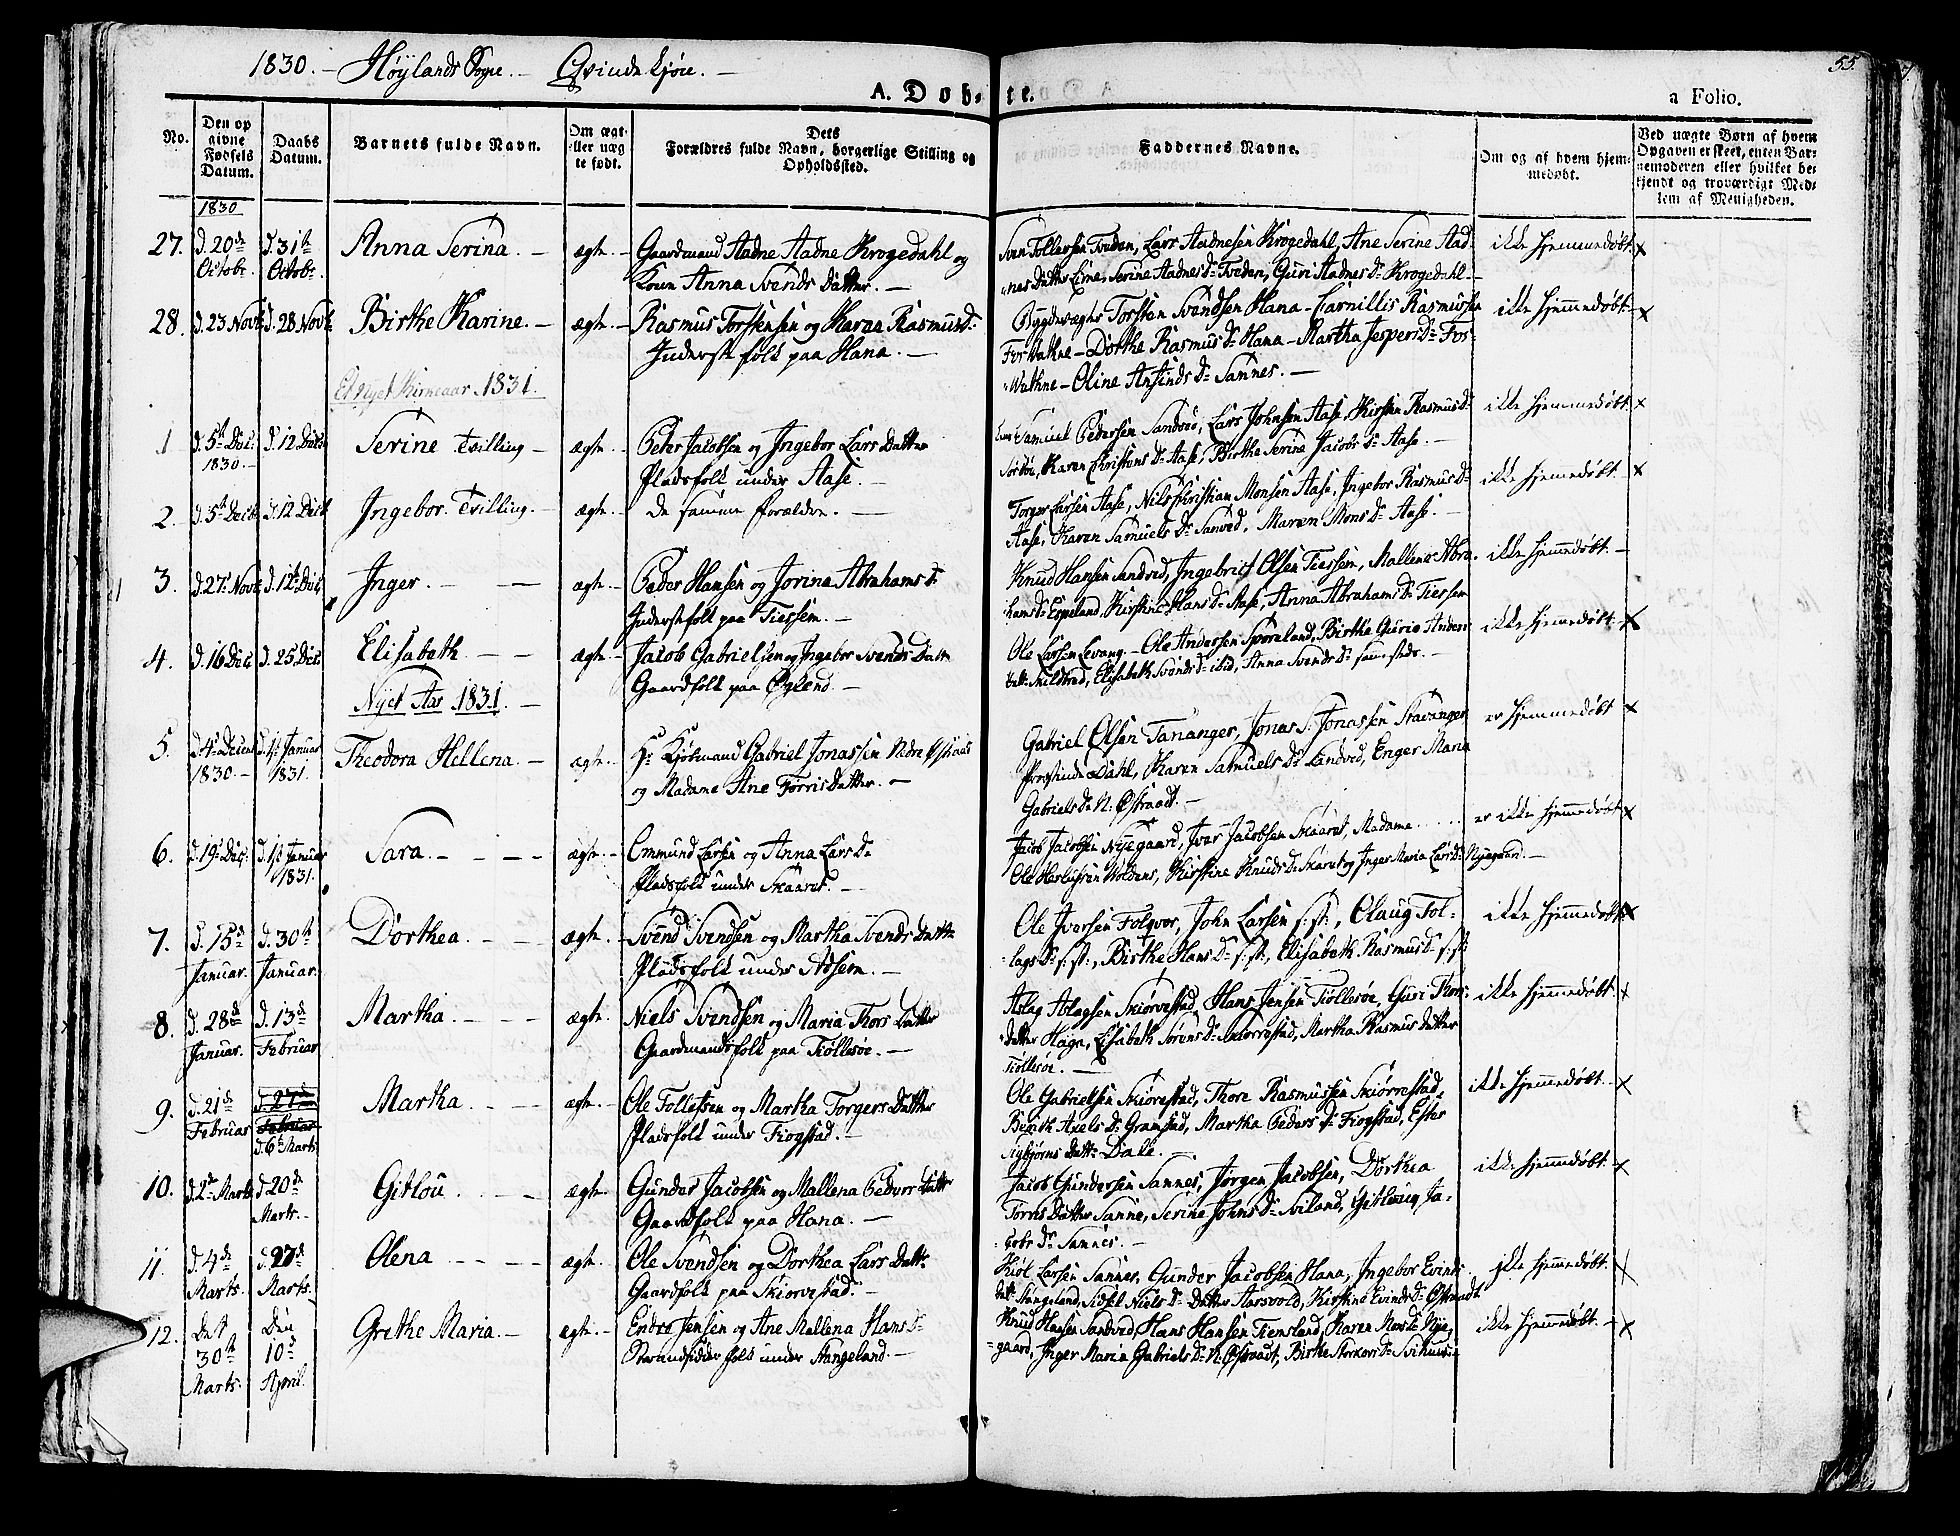 1830. – Høylands Sogn. – Qvindekjøn. –
55.
A. Døbte.
a Folio.
No.
Den opgivne Fødsels Datum.
Daabs Datum.
Barnets fulde Navn.
Om ægte eller uægte født.
Dets Forældres fulde Navn, borgerlige Stilling og Opholdssted.
Faddernes Navne.
Om og af hvem hjemmedøbt.
Ved uægte Børn af hvem Opgaven er skeet, enten Barnemoderen eller hvilket bekjendt og troværdigt Medlem af Menigheden.
1830
27. d. 20de Octobr. d. 31te Octobr. Anna Serina. – ægte. – Gaardmand Aadne Aadne Krogedahl og
Kone Anna Svends Datter. –
Sven Tollefsen Tveden, Lars Aadnesen Krogedahl, Ane Serine Aad-
nes Datter Lime, Serine Aadnes Dr Tveden, Guri Aadnes Dr Krogedahl –
ikke hjemmedøbt. x
28. d. 23 Novbr. d. 28 Novbr. Birthe Karine. – ægte. – Rasmus Torstensen og Karen Rasmus Dr
Inderst folk paa Hana. –
Torsten Svendsen Hana – Cornillis Rasmussen
Forvathne – Dorthe Rasmus Dr Hana – Martha Jespers Dr For-
Wathne – Oline Ansinds Dr Sannes. –
ikke hjemmedøbt. x
Et nyet Kirkeaar. 1831.
1 d. 5te Decbr. 1830. – d. 12 Decbr. Serine Tvilling – ægte. – Peter Jacobsen og Ingebor Lars Datter
Pladsfolk under Aase. –
Samuel Pedersen Sandved, Lars Johnsen Aase, Kirsten Rasmus Dr
Sørbøe, Karen Christens Dr Aase, Birthe Serine Jacobs Dr Aase. –
ikke hjemmedøbt. x
2. d. 5te Decbr. d. 12 Decbr. Ingebor. Tvilling. – ægte. – De samme Forældre. –
Torger Larsen Aase, Nils Christian Monsen Aase, Ingebor Rasmus Dr
Aase, Karen Samuels Dr Sanved, Maren Mons Dr Aase. –
ikke hjemmedøbt. x
3. d. 27 Novbr. d. 12te Decbr. Inger. – – ægte. – Peder Hansen og Jorina Abrahams Dr
Inderstfolk paa Tiessem. –
Knud Hansen Sandved, Ingebrict Olsen Tiessem, Mallene Abra-
hams Dr Espeland, Kirstine Hans Dr Aase, Anna Abrahams Dr Tiessem
ikke hjemmedøbt. –
4. d. 16 Decbr. d. 25 Decbr. Elisabeth – – ægte. – Jacob Gabrielsen og Ingebor Svends Datter
Gaardfolk paa Øglend –
Ole Larsen Levang – Ole Andersen Svoreland, Birthe Gurie Anders
Datt. Skildred, Elisabeth Svends Dr ibid, Anna Svends Dr sammesteds. –
ikke hjemmedøbt. x
Nyet Aar. 1831. –
5. d. 4de Decembr 1830 – d. 1ste Januar 1831. Theodora Hellena. – ægte. – Hr Kjøbmand Gabriel Jonassen Nedre Østraadt
og Madame Ane Torris Datter. –
Gabriel Olsen Tananger, Jonas S. Jonassen Stavanger
Dahl, Karen Samuels Dr Sandved, Enger Maria
Gabriels Dr N. Østraadt. –
er hjemmedøbt x
6. d. 19de Decbr. d. 1ste Januar 1831. Sara. – – – – ægte. – Ommund Larsen og Anna Lars Dr
Pladsfolk under Skaaret. –
Jacob Jacobsen Nyegaard, Iver Jacobsen Skaaret, Madame . . . . .
Ole Herlufsen Woldens, Kirstine Knuds Dr Skaret og Inger Maria Lars Dr Nyegaard. –
er ikke hjemmedøbt x
7. d. 15de Januar. d. 30te Januar. Dorthea. – – – ægte. – Svend Svendsen og Martha Svends Datter
Pladsfolk under Adsem. –
Ole Iversen Folqvor, John Larsen s: st:, Olaug Tol-
lags Dr s: st:, Birthe Hans Dr s: st:, Elisabeth Rasmus Dr s: st:
ikke hjemmedøbt x
8. d. 28de Januar. d. 13de Februar Martha. – – – ægte. Niels Svendsen og Maria Thors Datter
Gaardmandsfolk paa Tiøllesøe. –
Aslag Aslagsen Skiørvestad, Hans Jensen Tiøllesøe, Guri Thors-
datter Høgn, Elisabeth Sørens Dr Skiorvestad, Martha Rasmus Datter
Tiøllesøe. –
ikke hjemmedøbt. x
9. d. 21de Februar d. 27de Februar d. 6te Marts Martha. – – ægte. – Ole Tollefsen og Martha Torgers Datter
Pladsfolk under Fiogstad. –
Ole Gabrielsen Skiørvestad, Thore Rasmussen Skiorvestad,
Berith Axels Dr Gramstad, Martha Peders Dr Fiogstad, Ester
Sigbjørns Datt: Dale. –
ikke hjemmedøbt. – x
10. d. 2de Marts d. 20de Marts. – Gitlou. – – ægte. Gunder Jacobsen og Mallena Peders Datter
Gaardfolk paa Hana. –
Jacob Gundersen Sannes, Jørgen Jacobsen, Dorthea
Torris Datter Sanne, Serine Johns Dr Sviland, Gitlaug Ja-
cobs Dr Sannes. –
ikke hjemmedøbt. x
11. d. 4de Marts. d. 27de Marts. Olena – – – – ægte. Ole Svendsen og Dorthea Lars Datt.
Gaardfolk paa Skiorvestad. –
Kiøl Larsen Sannes, Gunder Jacobsen Hana, Ingebor Evinds-
datt. Stangeland, Sidsel Niels Dr Datter Aarsvold, Kirstine Evinds Dr Østraadt
ikke hjemmedøbt.
12. Det 30te Marts. Den 10de April. Grethe Maria. – ægte. – Endre Jensen og Ane Mallena Hans Dr
Strandsidder folk under Stangeland. –
Knud Hansen Sandved, Hans Hansen Tiensland, Karen Mons Dr Nye-
gaard, Inger Maria Gabriels Dr N: Østraadt, Birthe
ikke hjemmedøbt. – x